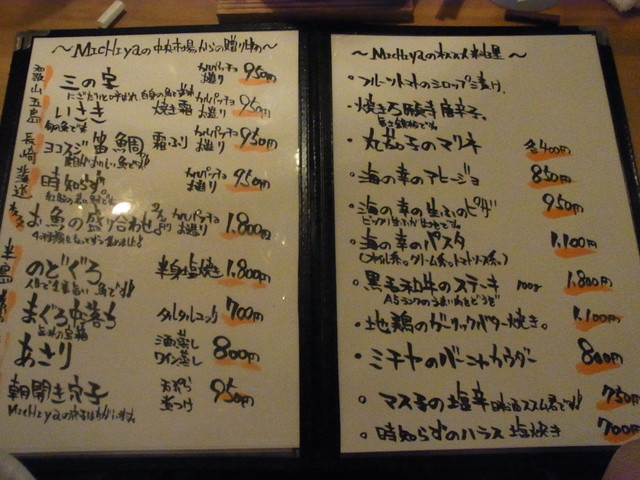 ～MicHiyaの中央市場からの贈り物～
三の字 カルパッチョ お造り 950円
いさき 焼き霜 カルパッチョ お造り 950円
長崎 ヨコスジ笛鯛 霜ふり カルパッチョ お造り 950円
北海道 時知らず。 カルパッチョ お造り 950円
お魚の盛り合わせ カルパッチョ お造り 1,800円
のどぐろ 半身塩焼き 1,800円
まぐろ中落ち タルタルユッケ 700円
あさり 酒蒸し ワイン蒸し 800円
朝開き穴子 煮つけ 950円
～MicHiyaのオススメ料理～
・フルーツトマトのシロップ漬け。
・焼き万願寺唐辛子。
・丸茄子のマリネ 各400円
・海の幸のアヒージョ 850円
・海の幸の生ふのピザ 950円
・海の幸のパスタ 1,100円
(オイル系。クリーム系。トマトソース系。)
・黒毛和牛のステーキ 100g 1,800円
A5ランクのうまい肉をどうぞ
・地鶏のガーリックバター焼き。 1,100円
・ミチヤのバーニャカウダー 800円
・マス子の塩辛 日本酒ススム君です 750円
・時知らずのハラス塩焼き 700円